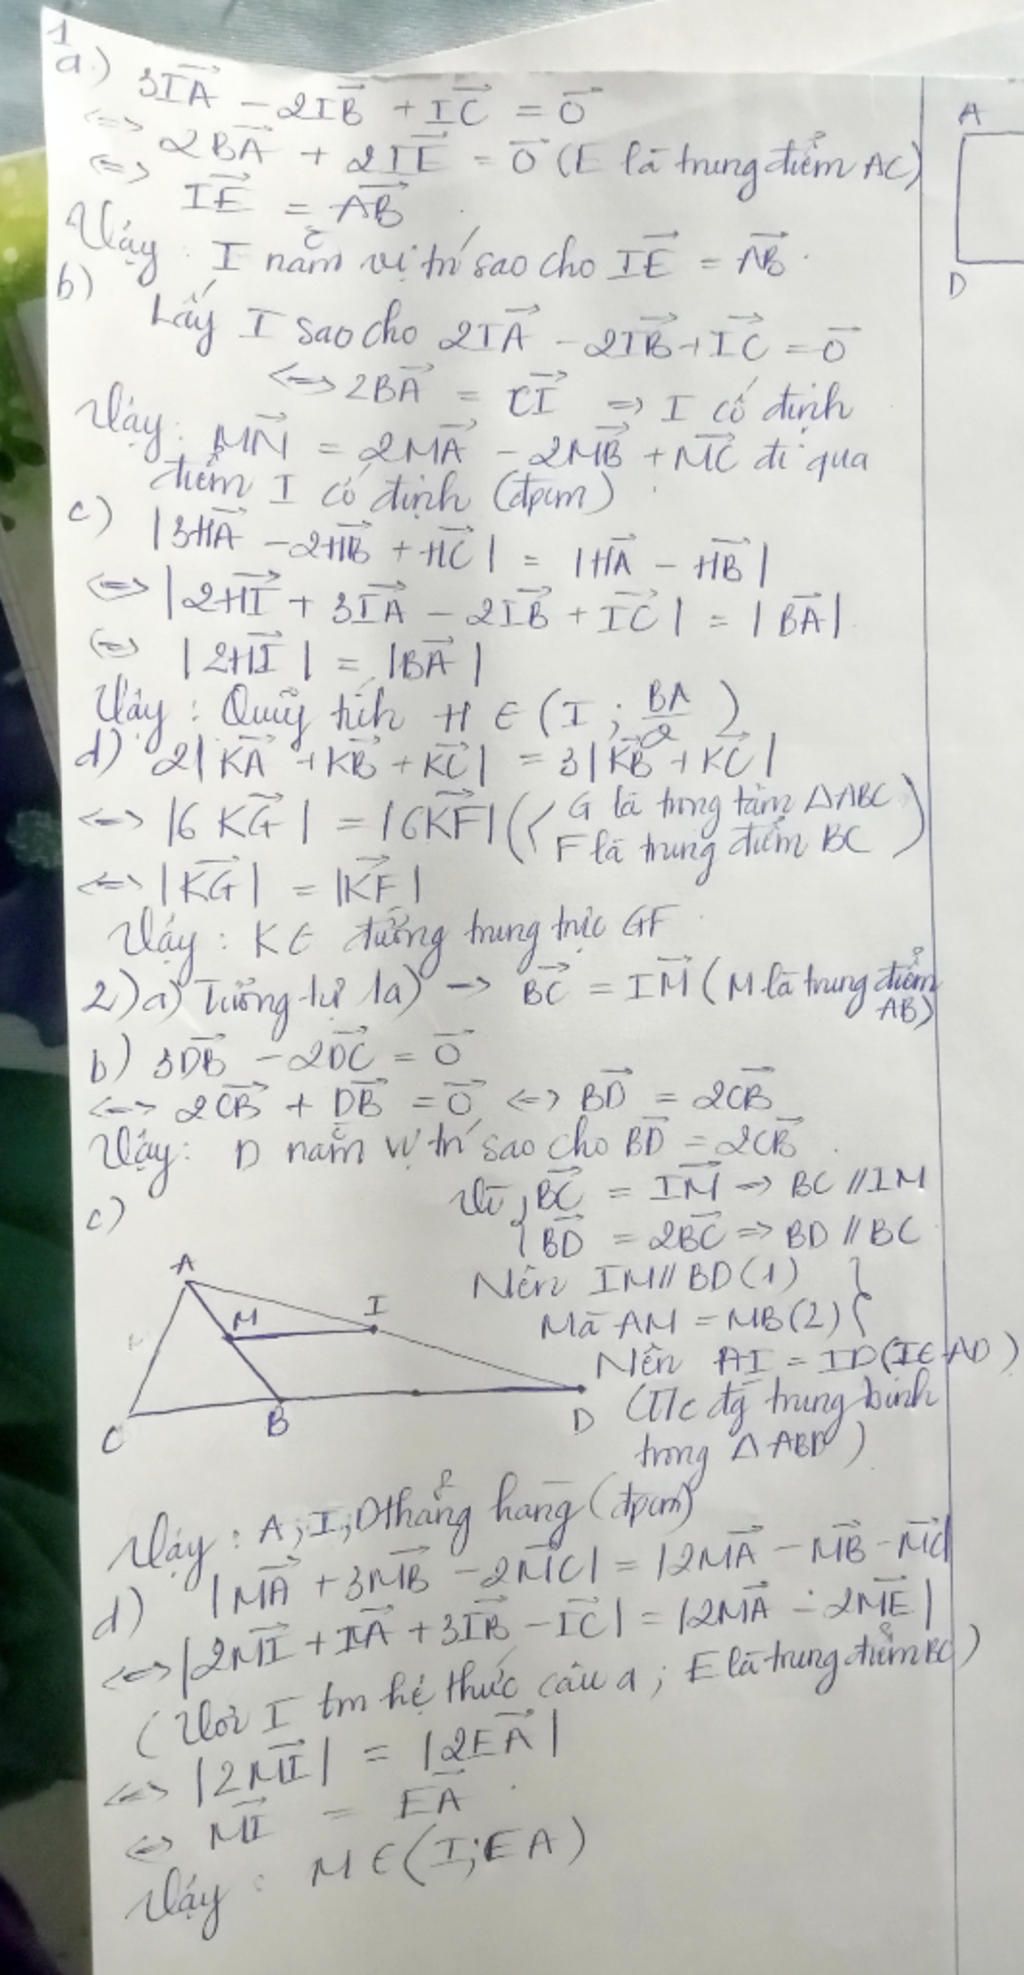 1
a.) 3IA→ - 2IB→ + IC→ = 0→
<=> 2BA→ + 2IE→ = 0→ (E là trung điểm AC)
<=> IE→ = AB→
Vậy : I nằm vị trí sao cho IE→ = AB→.
b) Lấy I sao cho 2IA→ - 2IB→ + IC→ = 0→
<=> 2BA→ = CI→ => I cố định
Vậy: MN→ = 2MA→ - 2MB→ + MC→ đi qua
điểm I cố định (đpcm)
c) |3HA→ - 2HB→ + HC→| = |HA→ - HB→|
<=> |2HI→ + 3IA→ - 2IB→ + IC→| = |BA→|
<=> |2HI→| = |BA→|
Vậy : Quỹ tích H ∈ (I ; BA/2)
d) 2|KA→ + KB→ + KC→| = 3|KB→ + KC→|
<=> |6KG→| = |6KF→| ({ G là trọng tâm ΔABC
F là trung điểm BC )
<=> |KG→| = |KF→|
Vậy : K ∈ đường trung trực GF
2) a) Tương tự 1a) -> BC→ = IM→ (M là trung điểm
AB)
b) 3DB→ - 2DC→ = 0→
<=> 2CB→ + DB→ = 0→ <=> BD→ = 2CB→
Vậy: D nằm vị trí sao cho BD→ = 2CB→.
c) Vì { BC→ = IM→ => BC // IM
BD→ = 2BC→ => BD // BC
Nên IM // BD (1) }
Mà AM = MB (2)
Nên AI = ID (I ∈ AD)
(T/c đg trung bình
trong ΔABD)
A
M
I
C
B
D
Vậy : A, I, D thẳng hàng (đpcm)
d) |MA→ + 3MB→ - 2MC→| = |2MA→ - MB→ - MC→|
<=> |2MI→ + IA→ + 3IB→ - IC→| = |2MA→ - 2ME→|
(Với I tm hệ thức câu a ; E là trung điểm BC)
<=> |2MI→| = |2EA→|
<=> MI→ = EA→.
Vậy : M ∈ (I; EA)
A
D